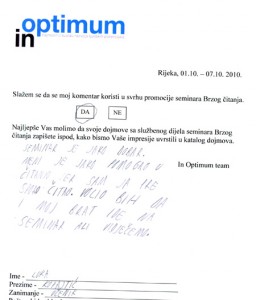 optimum
in
Rijeka, 01.10. – 07.10. 2010.
Slažem se da se moj komentar koristi u svrhu promocije seminara Brzog čitanja.
DA NE
Najljepše Vas molimo da svoje dojmove sa službenog dijela seminara Brzog
čitanja zapišete ispod, kako bismo Vaše impresije uvrstili u katalog dojmova.
SEMINAR JE JAKO DOBAR.
MENI JE JAKO POMOGAO U In Optimum team
ČITANJU JER SAM JA PRE
SPORO ČITAO. VOLIO BIH DA
I MOJ BRAT IDE NA
SEMINAR
Ime -
Prezime -
Zanimanje - UČENIK